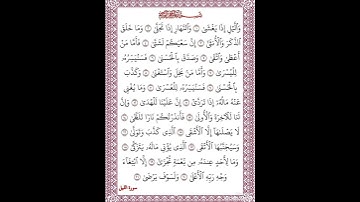 وَٱلَّيۡلِ إِذَا يَغۡشَىٰ ۝ وَٱلنَّهَارِ إِذَا تَجَلَّىٰ ۝ وَمَا خَلَقَ
ٱلذَّكَرَ وَٱلۡأُنثَىٰٓ ۝ إِنَّ سَعۡيَكُمۡ لَشَتَّىٰ ۝ فَأَمَّا مَنۡ
أَعۡطَىٰ وَٱتَّقَىٰ ۝ وَصَدَّقَ بِٱلۡحُسۡنَىٰ ۝ فَسَنُيَسِّرُهُۥ
لِلۡيُسۡرَىٰ ۝ وَأَمَّا مَنۢ بَخِلَ وَٱسۡتَغۡنَىٰ ۝ وَكَذَّبَ
بِٱلۡحُسۡنَىٰ ۝ فَسَنُيَسِّرُهُۥ لِلۡعُسۡرَىٰ ۝ وَمَا يُغۡنِي
عَنۡهُ مَالُهُۥٓ إِذَا تَرَدَّىٰٓ ۝ إِنَّ عَلَيۡنَا لَلۡهُدَىٰ ۝ وَإِنَّ
لَنَا لَلۡأٓخِرَةَ وَٱلۡأُولَىٰ ۝ فَأَنذَرۡتُكُمۡ نَارٗا تَلَظَّىٰ ۝
لَا يَصۡلَىٰهَآ إِلَّا ٱلۡأَشۡقَى ۝ ٱلَّذِي كَذَّبَ وَتَوَلَّىٰ ۝
وَسَيُجَنَّبُهَا ٱلۡأَتۡقَى ۝ ٱلَّذِي يُؤۡتِي مَالَهُۥ يَتَزَكَّىٰ ۝
وَمَا لِأَحَدٍ عِندَهُۥ مِن نِّعۡمَةٖ تُجۡزَىٰٓ ۝ إِلَّا ٱبۡتِغَآءَ
وَجۡهِ رَبِّهِ ٱلۡأَعۡلَىٰ ۝ وَلَسَوۡفَ يَرۡضَىٰ ۝
سورة الليل